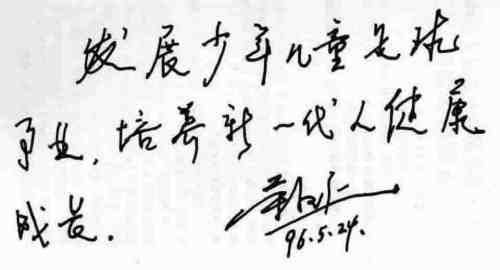 发展少年儿童足球
事业，培养新一代人健康
成长.
96.5.24.